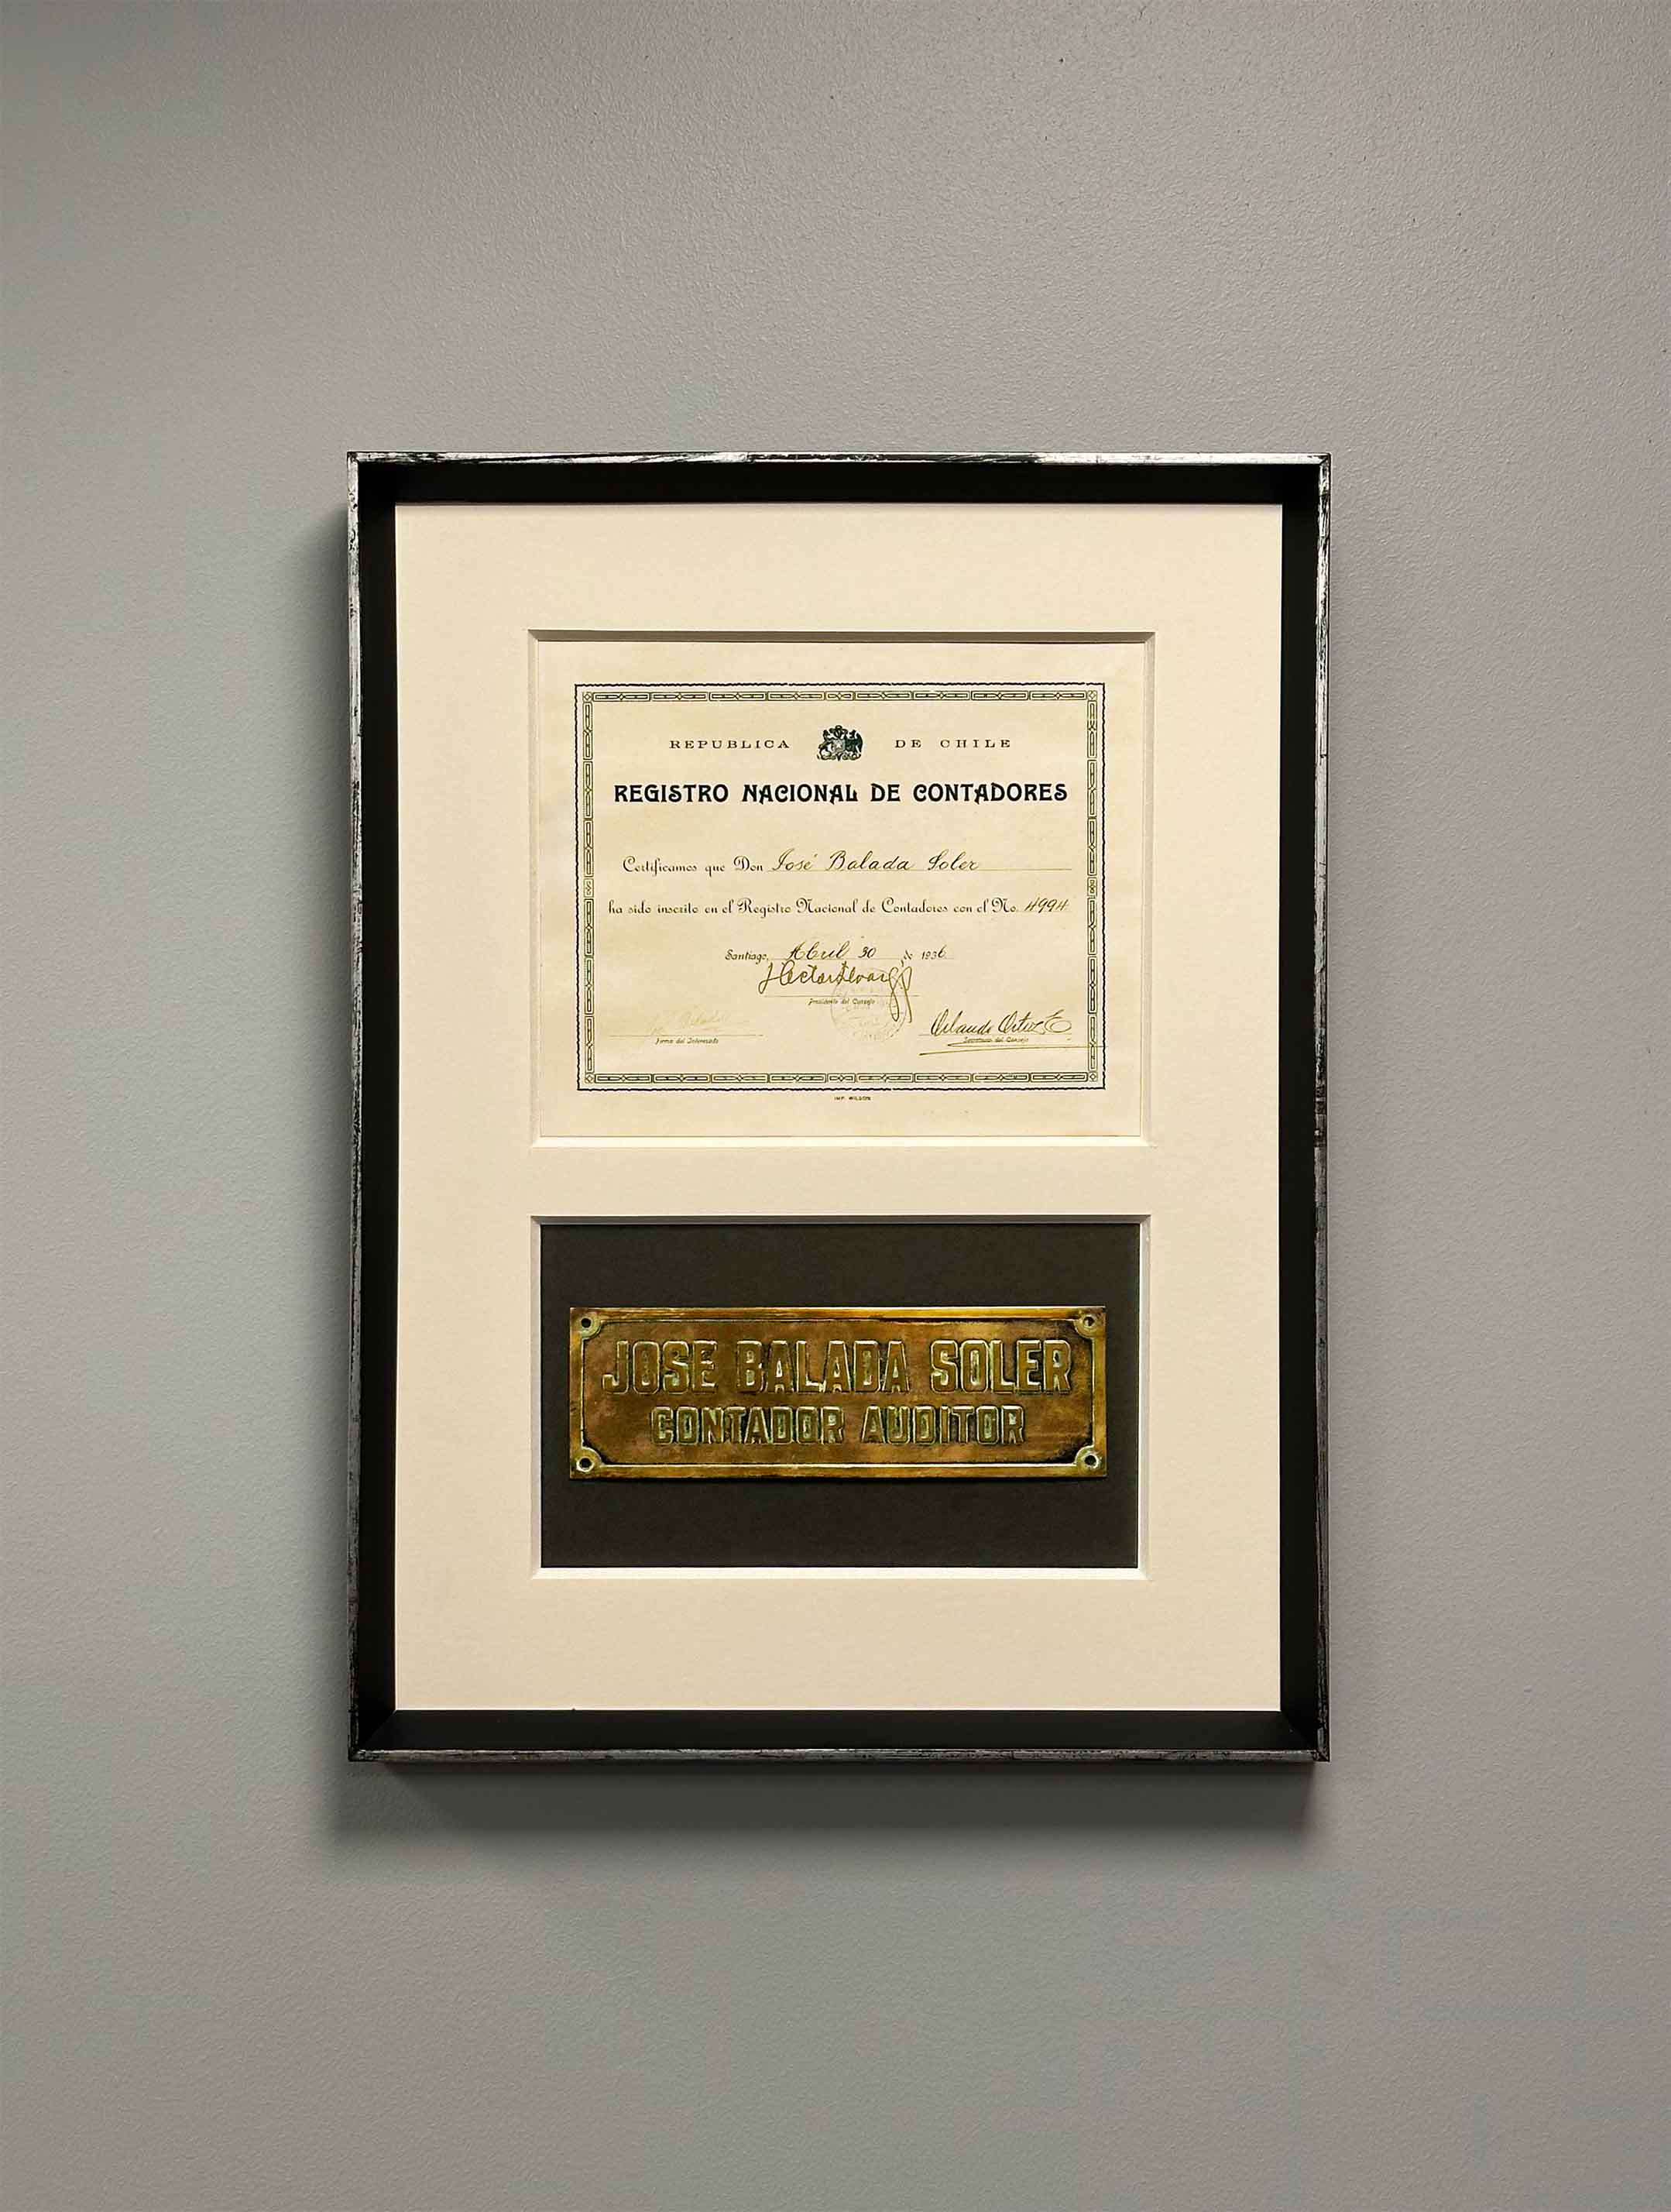 REPUBLICA DE CHILE
REGISTRO NACIONAL DE CONTADORES
Certificamos que Don José Balada Soler
ha sido inscrito en el Registro Nacional de Contadores con el No. 4994
Santiago, Abril 30 de 1936
Presidente del Consejo
Orlando Ortuz E
Firma del Interesado
Secretario del Consejo
IMP. WILSON
JOSE BALADA SOLER
CONTADOR AUDITOR